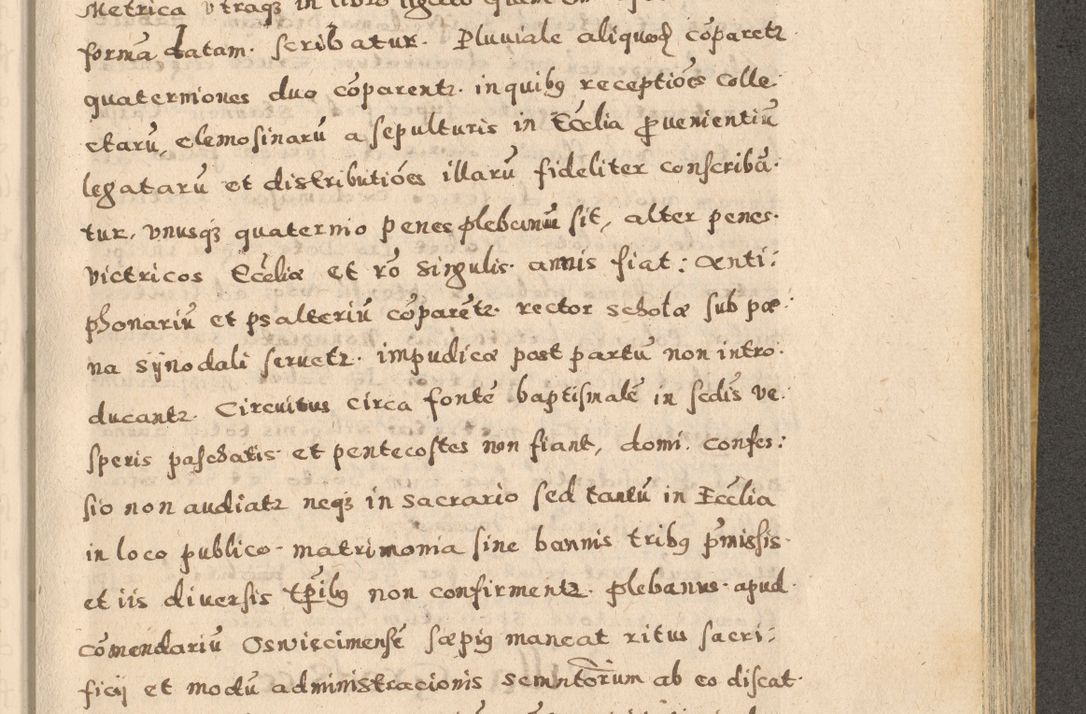 Metrica utraqȝ in libro ligato quem
formā datam. scribatur. Pluuiale aliquod cōparetr.
quaterniones duo cōparentr. inquibꝰ receptiōes colle
ctarū, elemosinarū a sepulturis in Eccłia ꝓuenientiū
legatarū et distributiōes illarū fideliter conscribā.
tur, vnusqȝ quaternio penes plebanū sit, alter penes.
victricos Eccłiæ et rō singulis. annis fiat: Anti:
phonariū et psalteriū cōparētr. rector scholæ sub pœ:
na synodali seruetr. impudicæ post partū non intro.
ducantr. Circuitus circa fontē baptismalē in fcdis ve.
speris paschatis. et pentecostes non fiant, domi. confes:
sio non audiatr neqȝ in sacrario sed tantū in Eccłia
in loco publico. matrimonia sine bannis tribꝰ pīmissis.
et iis diuersis tp̄ibꝰ non confirmentr. plebanus. apud.
cōmendariū Oswiecimensē sæpiꝰ maneat ritus sacri:
ficij et modū administracionis scmntōrum ab eo discat.